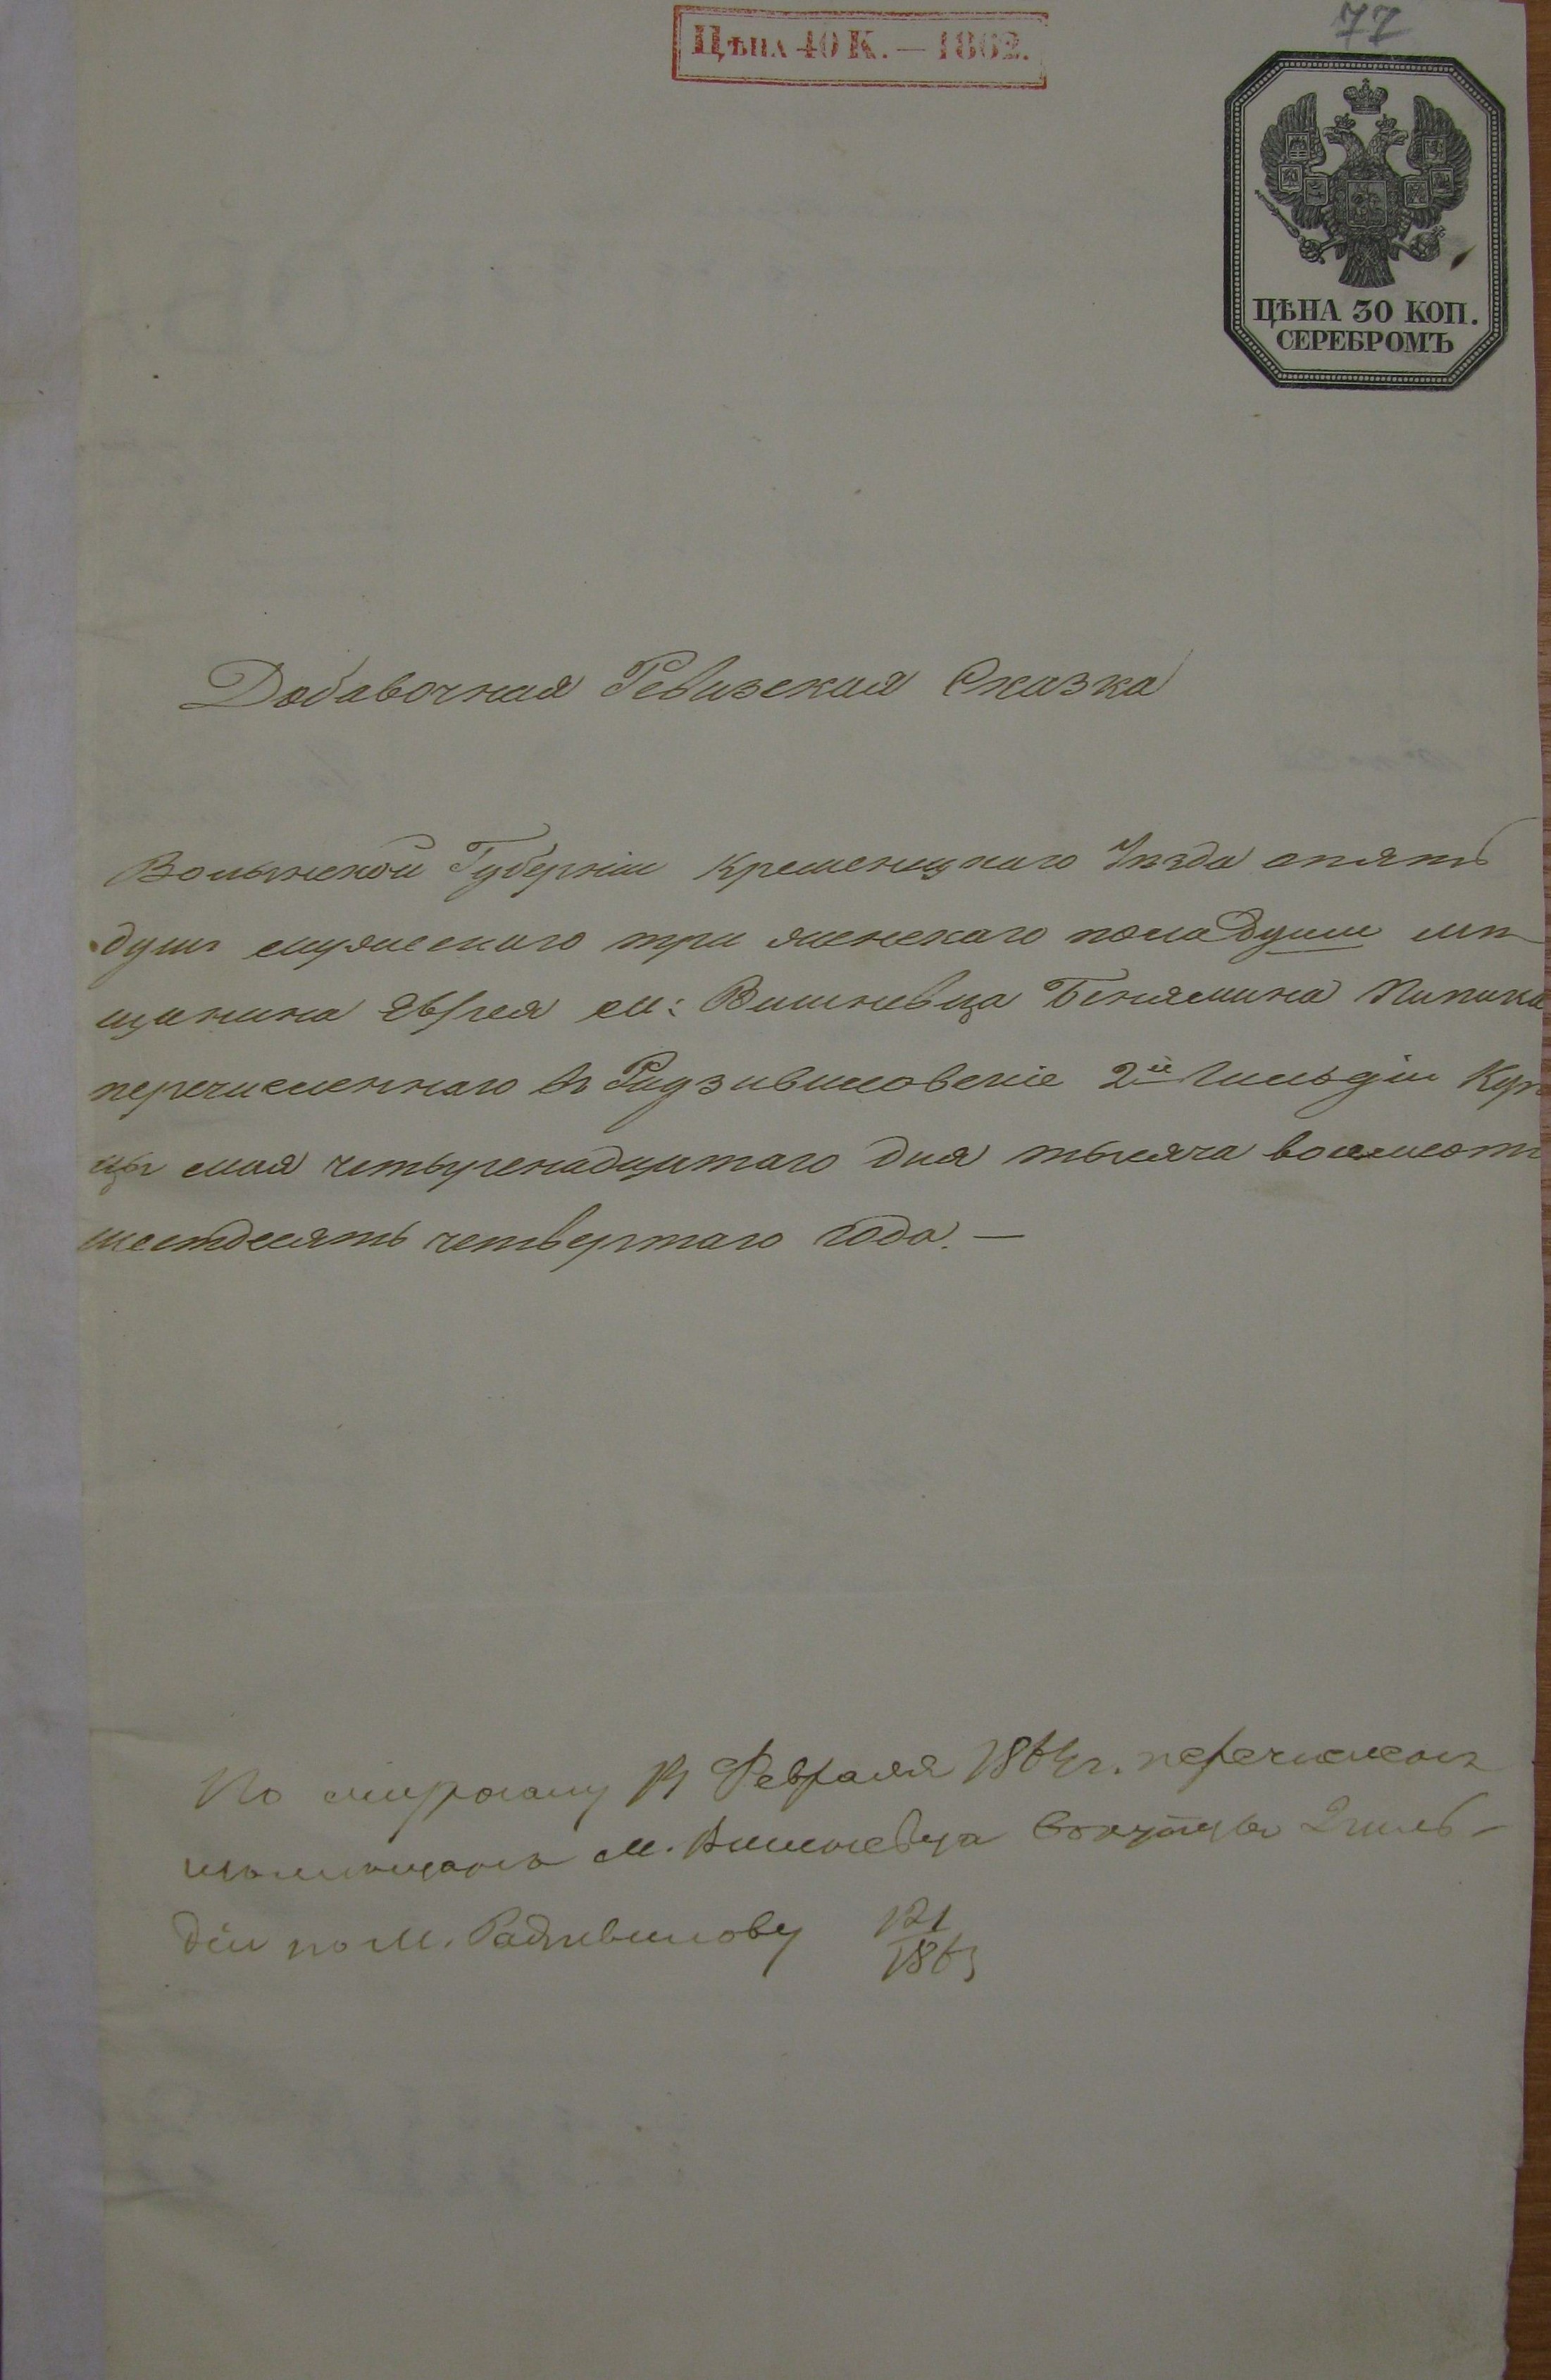 77
Цѣна 40 К. — 1862.
ЦѢНА 30 КОП.
СЕРЕБРОМЪ
Добавочная Ревизская Сказка
Волынской Губерніи Кременецкаго Уѣзда опять
душъ мужескаго три женскаго пола души мѣ
щанина Еврея м: Вишневца Бенямина Пипика
перечисленнаго въ Радзивиловскіе 2й Гильдіи Куп
цы мая четыренадцатаго дня тысяча восемсотъ
шестдесять четвертаго года. —
По 19 Февраля 1864 г. перечисленъ
м. Вишневца вокупцы 2 гиль-
діи по М. Радзивилову 121
1863